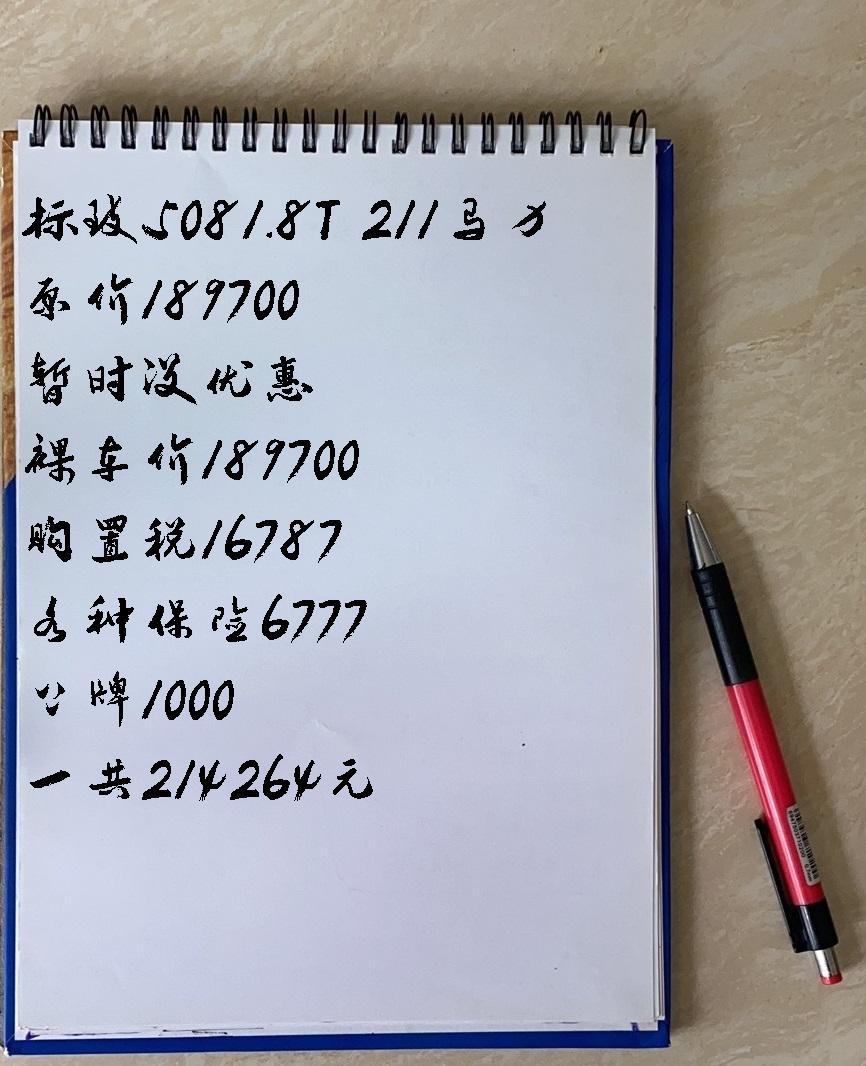 标致5081.8T 211马力
原价189700
暂时没优惠
裸车价189700
购置税16787
各种保险6777
公牌1000
一共214264元